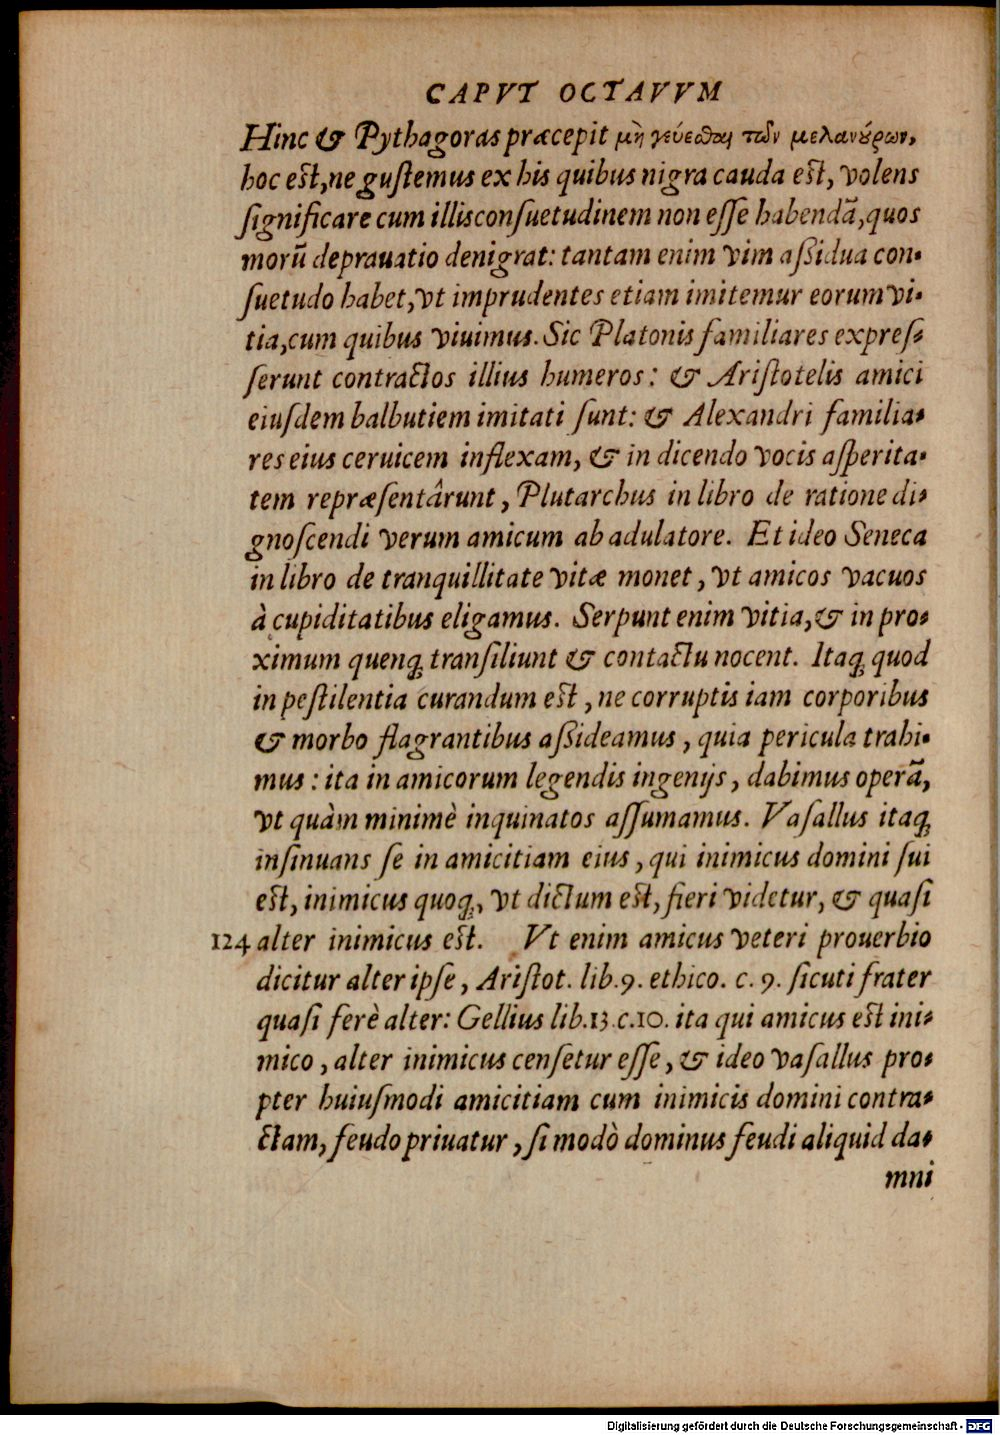 CAPVT OCTAVVM
Hinc & Pythagoras præcepit μὴ γεύεσθαι τῶν μελανούρων,
hoc est, ne gustemus ex his quibus nigra cauda est, volens
ſignificare cum illis conſuetudinem non eſſe habendā, quos
morū deprauatio denigrat: tantam enim vim aſſidua con-
ſuetudo habet, vt imprudentes etiam imitemur eorum vi-
tia, cum quibus viuimus. Sic Platonis familiares expreſ-
ſerunt contractos illius humeros: & Ariſtotelis amici
eiuſdem balbutiem imitati ſunt: & Alexandri familia-
res eius ceruicem inflexam, & in dicendo vocis aſperita-
tem repræſentârunt, Plutarchus in libro de ratione di-
gnoſcendi verum amicum ab adulatore. Et ideo Seneca
in libro de tranquillitate vitæ monet, vt amicos vacuos
à cupiditatibus eligamus. Serpunt enim vitia, & in pro-
ximum quenq; tranſiliunt & contactu nocent. Itaq; quod
in peſtilentia curandum est, ne corruptis iam corporibus
& morbo flagrantibus aſſideamus, quia pericula trahi-
mus: ita in amicorum legendis ingenijs, dabimus operā,
vt quàm minimè inquinatos aſſumamus. Vaſallus itaq;
inſinuans ſe in amicitiam eius, qui inimicus domini ſui
est, inimicus quoq;, vt dictum est, fieri videtur, & quaſi
124 alter inimicus est. Vt enim amicus veteri prouerbio
dicitur alter ipſe, Ariſtot. lib. 9. ethico. c. 9. ſicuti frater
quaſi ferè alter: Gellius lib. 13. c. 10. ita qui amicus est ini-
mico, alter inimicus cenſetur eſſe, & ideo vaſallus pro-
pter huiuſmodi amicitiam cum inimicis domini contra-
ctam, feudo priuatur, ſi modò dominus feudi aliquid da-
mni
Digitalisierung gefördert durch die Deutsche Forschungsgemeinschaft - DFG